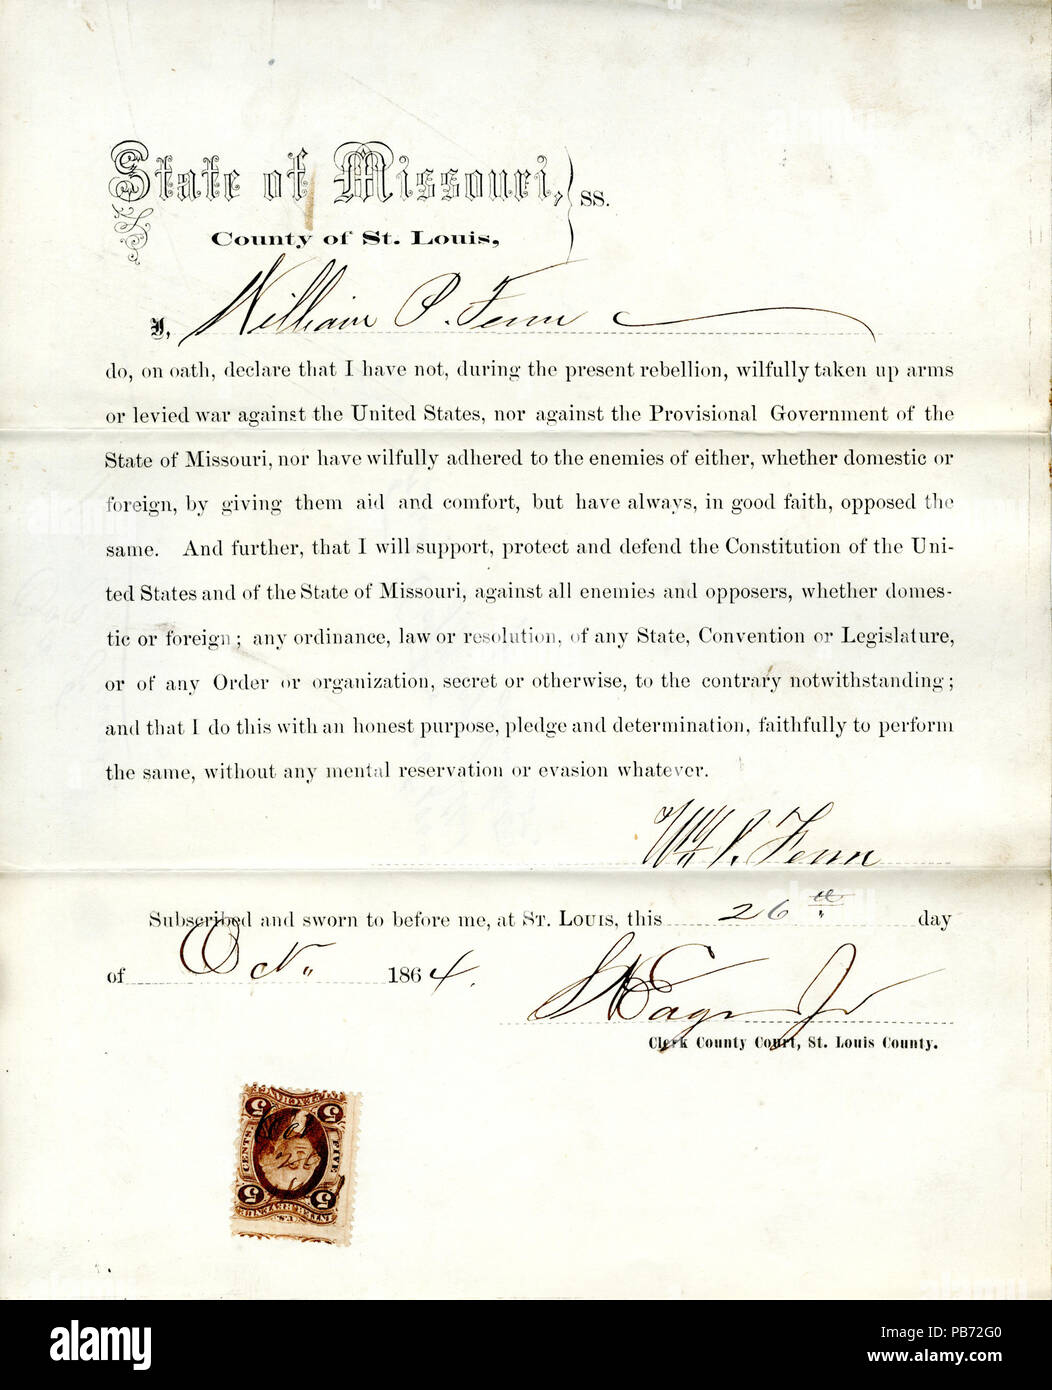 State of Missouri, } ss.
County of St. Louis,
I, William P. Fenn
do, on oath, declare that I have not, during the present rebellion, wilfully taken up arms
or levied war against the United States, nor against the Provisional Government of the
State of Missouri, nor have wilfully adhered to the enemies of either, whether domestic or
foreign, by giving them aid and comfort, but have always, in good faith, opposed the
same. And further, that I will support, protect and defend the Constitution of the Uni-
ted States and of the State of Missouri, against all enemies and opposers, whether domes-
tic or foreign; any ordinance, law or resolution, of any State, Convention or Legislature,
or of any Order or organization, secret or otherwise, to the contrary notwithstanding;
and that I do this with an honest purpose, pledge and determination, faithfully to perform
the same, without any mental reservation or evasion whatever.
Wm P. Fenn
Subscribed and sworn to before me, at St. Louis, this 26th day
of Oct 1864.
Jr
Clerk County Court, St. Louis County.
5 5
CENTS. FIVE
5 5
U.S.
alamy
Image ID: PB72G0
www.alamy.com